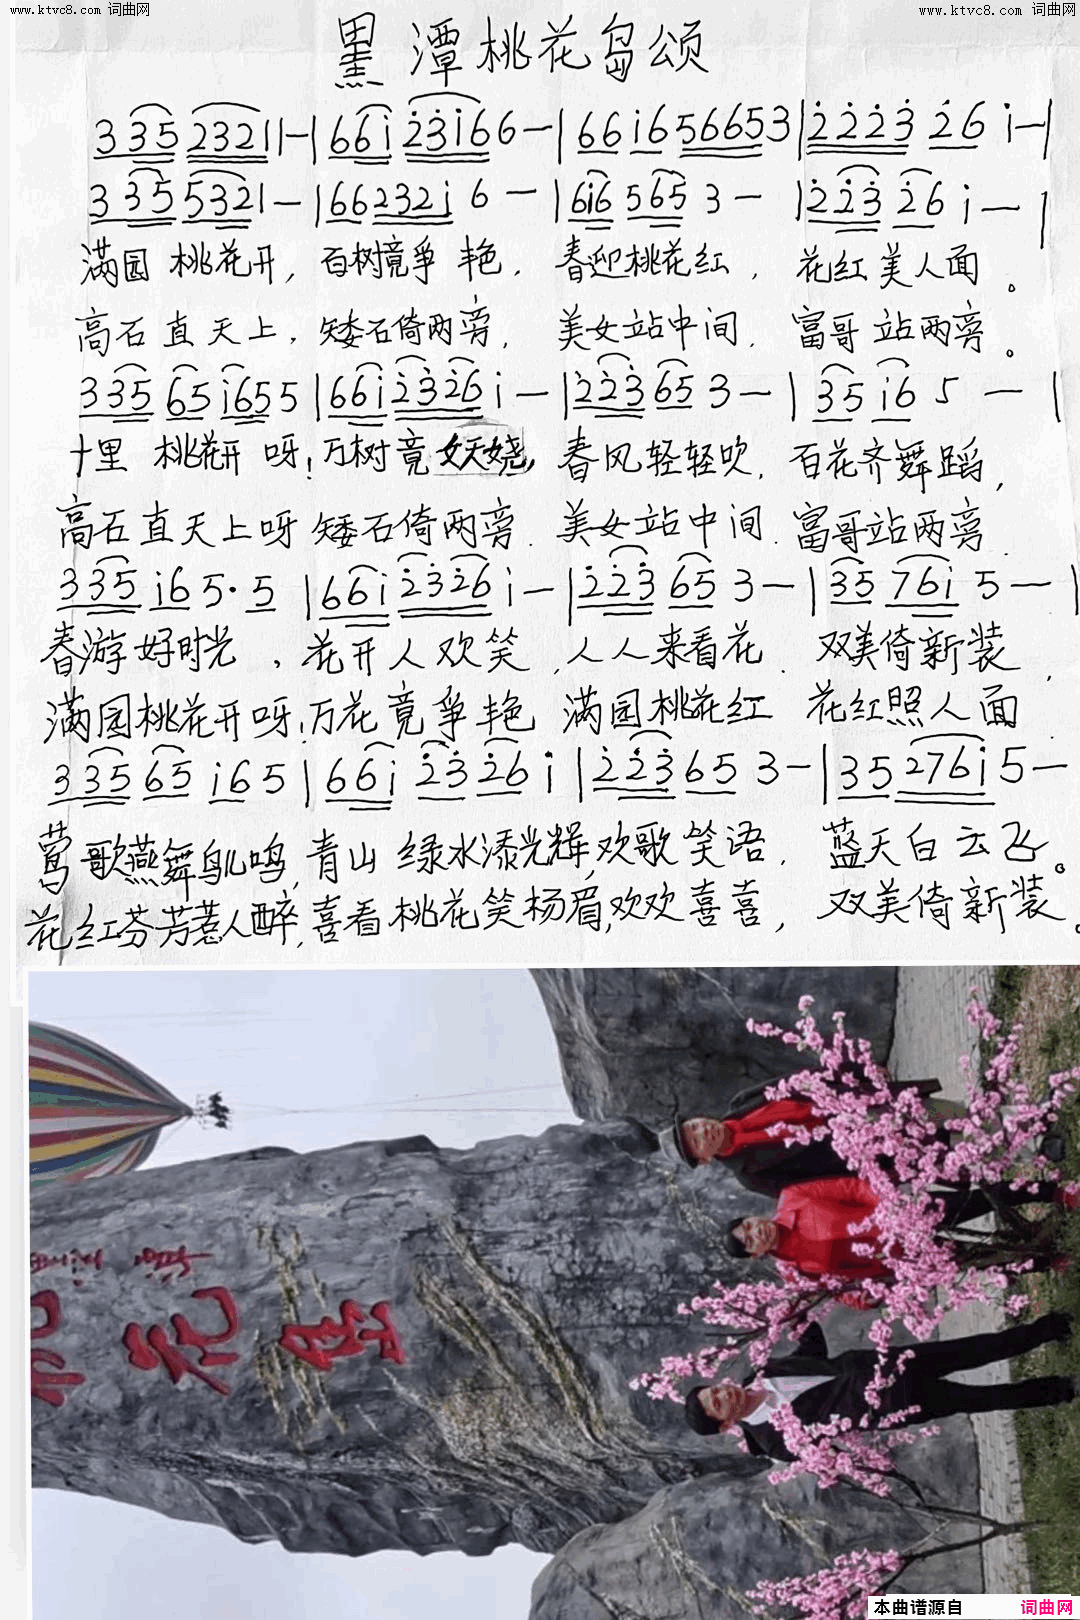 www.ktvc8.com 词曲网
www.ktvc8.com 词曲网
黑潭桃花岛颂
3 3 5 2 3 2 1 1 - | 6 6 i 2 3 i 6 6 - | 6 6 i 6 5 6 6 5 3 | 2 2 2 3 2 6 i - |
3 3 5 5 3 2 1 - | 6 6 2 3 2 i 6 - | 6 i 6 5 6 5 3 - | 2 2 3 2 6 i - |
满园桃花开，百树竟争艳，春迎桃花红，花红美人面。
高石直天上，矮石倚两旁，美女站中间，富哥站两旁。
3 3 5 6 5 i 6 5 5 | 6 6 i 2 3 2 6 i - | 2 2 3 6 5 3 - | 3 5 i 6 5 - |
十里桃花开呀！万树竟妖娆，春风轻轻吹，百花齐舞蹈，
高石直天上呀矮石倚两旁．美女站中间．富哥站两旁．
3 3 5 i 6 5 · 5 | 6 6 i 2 3 2 6 i - | 2 2 3 6 5 3 - | 3 5 7 6 i 5 - |
春游好时光，花开人欢笑，人人来看花．双美倚新装，
满园桃花开呀！万花竟争艳 满园桃花红 花红照人面
3 3 5 6 5 i 6 5 | 6 6 i 2 3 2 6 i | 2 2 3 6 5 3 - | 3 5 2 7 6 i 5 -
莺歌燕舞鸟儿鸣，青山绿水添光辉，欢歌笑语，蓝天白云飞。
花红芬芳惹人醉，喜看桃花笑杨眉，欢欢喜喜，双美倚新装。
花岛
本曲谱源自 词曲网